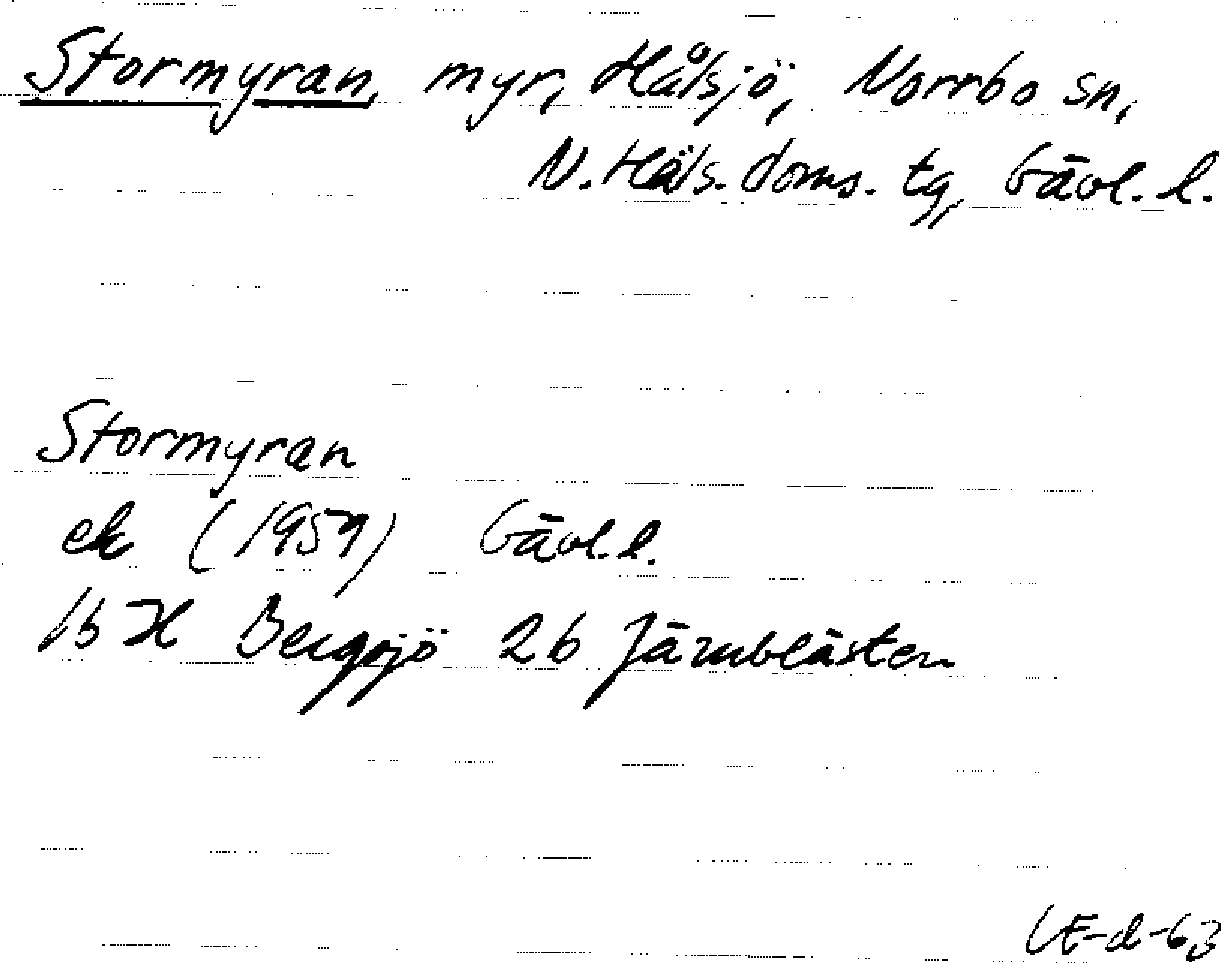 Stormyran, myr, Hålsjö, Norrbo sn,
N. Häls. doms. tg, Gävl. l.
Stormyran
ek (1957) Gävl. l.
Bergsjö 26 Järnblästen